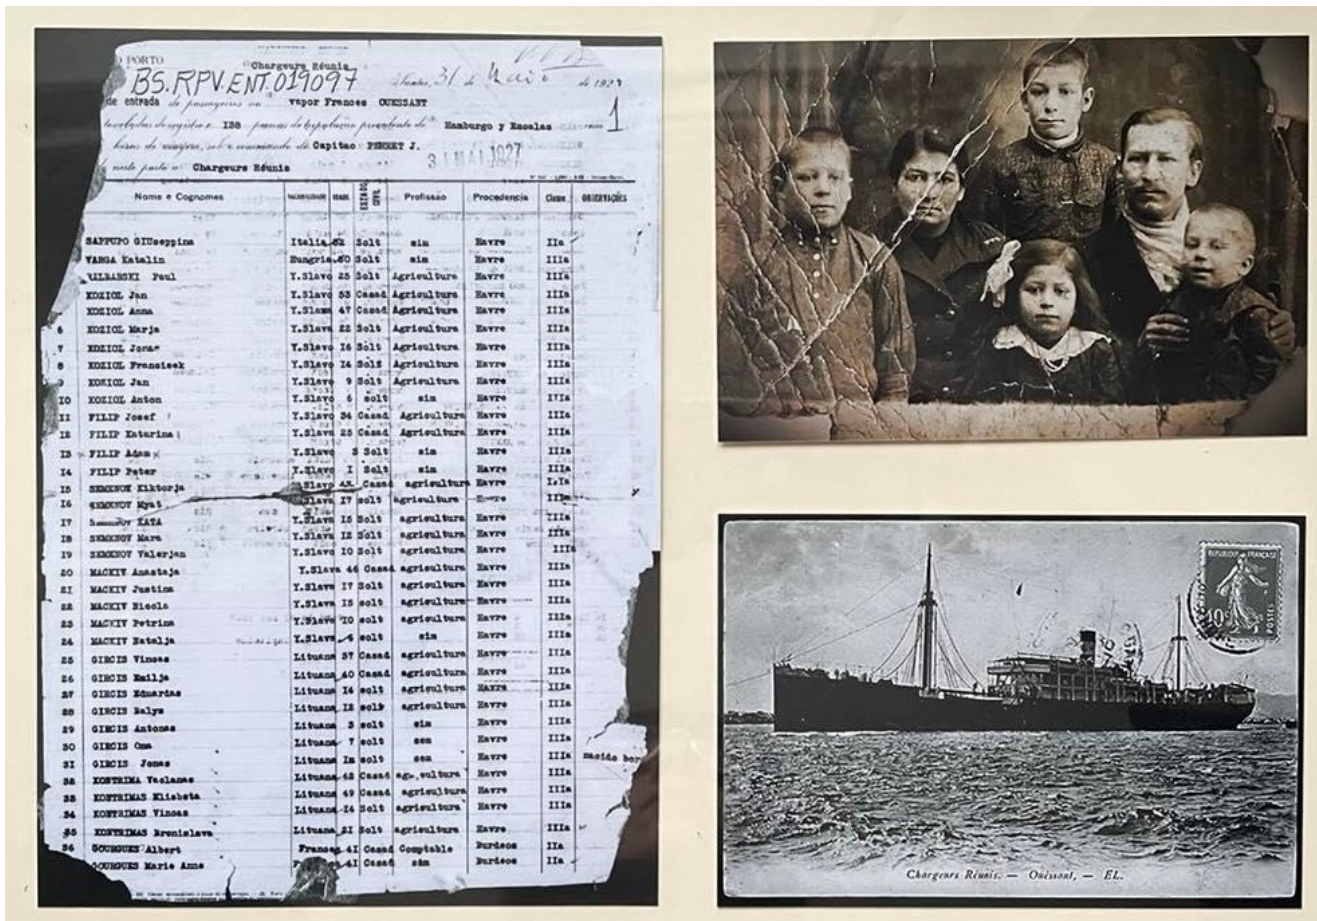 PORTO
Chargeurs Réunis
BS.RPV.ENT.019097
Santos, 31 de Maio de 1927
de entrada de passageiros no vapor Frances OUESSANT
toneladas de registro e 138 pessoas de tripulação procedente de Hamburgo y Escalas
1
horas de viagem, sob o commando do Capitao PERRET J.
31 MAI 1927
neste porto a Chargeurs Réunis
Nome e Cognomes NACIONALIDADE IDADE ESTADO CIVIL Profissão Procedencia Classe OBSERVAÇÕES
SAPPUPO GIUseppina Italia Solt sim Havre IIa
VARGA Katalin Hungria Solt sim Havre IIIa
Paul Y.Slavo 25 Solt Agricultura Havre IIIa
KOZIOL Jan Y.Slavo 53 Casad Agricultura Havre IIIa
KOZIOL Anna Y.Slava 47 Casad Agricultura Havre IIIa
6 KOZIOL Marja Y.Slava 22 Solt Agricultura Havre IIIa
7 KOZIOL Jonas Y.Slavo I6 Solt Agricultura Havre IIIa
8 KOZIOL Fransisek Y.Slavo I4 Solt Agricultura Havre IIIa
9 KOZIOL Jan Y.Slavo 9 Solt Agricultura Havre IIIa
IO KOZIOL Anton Y.Slavo 6 solt sim Havre IIIa
II FILIP Josef Y.Slavo 34 Casad Agricultura Havre IIIa
I2 FILIP Katarina Y.Slavo 25 Casad Agricultura Havre IIIa
I3 FILIP Adam Y.Slavo 3 Solt sim Havre IIIa
I4 FILIP Peter Y.Slavo I Solt sim Havre IIIa
I5 SEMENOV Kiktorja Slavo Casad agricultura Havre IIIa
I6 SEMENOV Myat Slava I7 solt agricultura Havre IIIa
I7 KATA Y.Slava I5 Solt agricultura Havre IIIa
I8 SEMENOV Mara Y.Slava I2 Solt agricultura Havre IIIa
I9 SEMENOV Valerjan Y.Slavo IO Solt agricultura Havre IIIa
20 MACKIV Anastaja Y.Slava 44 Casad agricultura Havre IIIa
2I MACKIV Justina Y.Slava I7 Solt agricultura Havre IIIa
22 MACKIV Nicola Y.Slava I5 solt agricultura Havre IIIa
23 MACKIV Petrina Y.Slava IO solt agricultura Havre IIIa
24 MACKIV Natalja Y.Slava solt sim Havre IIIa
25 GIRCIS Vincas Lituana 37 Casad agricultura Havre IIIa
26 GIRCIS Emilja Lituana 40 Casad agricultura Havre IIIa
27 GIRCIS Eduardas Lituana I4 solt agricultura Havre IIIa
28 GIRCIS Balys Lituana I2 solt agricultura Havre IIIa
29 GIRCIS Antonas Lituana 3 solt sim Havre IIIa
30 GIRCIS Ona Lituana 7 solt sem Havre IIIa
3I GIRCIS Jonas Lituana Im solt sem Havre IIIa nacido bor
32 KONTRIMA Vaclanas Lituana 42 Casad agricultura Havre IIIa
33 KONTRIMAS Elisbeta Lituana 49 Casad agricultura Havre IIIa
34 KONTRIMAS Vincas Lituana I4 Solt agricultura Havre IIIa
35 KONTRIMAS Bronislava Lituana 2I Solt agricultura Havre IIIa
36 GOURGUES Albert Frances 4I Casad Comptable Burdeos IIa
GOURGUES Marie Anne 4I Casad sim Burdeos IIa
REPUBLIQUE FRANÇAISE
10c
POSTES
Chargeurs Réunis. — Ouessant, — EL.